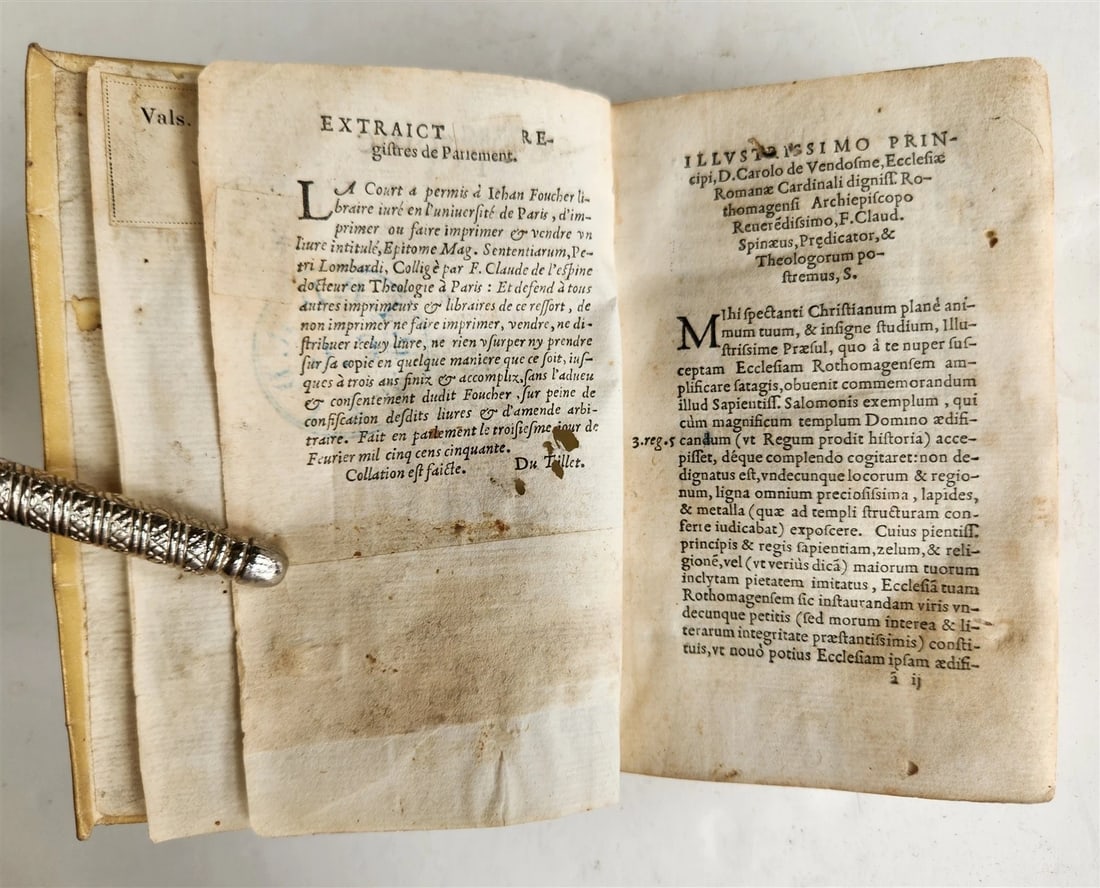 Vals.
EXTRAICT RE-
giſtres de Parlement.
LA Court a permis à Iehan Foucher li-
braire iuré en l'uniuerſité de Paris, d'im-
primer ou faire imprimer & vendre vn
liure intitulé, Epitome Mag. Sententiarum, Pe-
tri Lombardi, Colligè par F. Claude de l'eſpine
docteur en Theologie à Paris : Et defend à tous
autres imprimeurs & libraires de ce reſſort, de
non imprimer ne faire imprimer, vendre, ne di-
ſtribuer iceluy liure, ne rien vſurper ny prendre
ſur ſa copie en quelque maniere que ce ſoit, iuſ-
ques à trois ans finiz & accompliz, ſans l'adueu
& conſentement dudit Foucher, ſur peine de
confiſcation deſdits liures & d'amende arbi-
traire. Fait en parlement le troiſieſme iour de
Feurier mil cinq cens cinquante.
Collation eſt faicte. Du Tillet.
ILLVSTRISSIMO PRIN-
cipi, D. Carolo de Vendoſme, Eccleſiæ
Romanæ Cardinali digniſſ. Ro-
thomagenſi Archiepiſcopo
Reuerēdiſsimo, F. Claud.
Spinæus, Prędicator, &
Theologorum po-
ſtremus, S.
MIhi ſpectanti Chriſtianum planè ani-
mum tuum, & inſigne ſtudium, Illu-
ſtriſsime Præſul, quo à te nuper ſuſ-
ceptam Eccleſiam Rothomagenſem am-
plificare ſatagis, obuenit commemorandum
illud Sapientiſſ. Salomonis exemplum, qui
cùm magnificum templum Domino ædifi-
3.reg.5 candum (vt Regum prodit hiſtoria) acce-
piſſet, déque complendo cogitaret: non de-
dignatus eſt, vndecunque locorum & regio-
num, ligna omnium precioſiſsima, lapides,
& metalla (quæ ad templi ſtructuram con-
ferre iudicabat) expoſcere. Cuius pientiſſ.
principis & regis ſapientiam, zelum, & reli-
gionē, vel (vt veriùs dicā) maiorum tuorum
inclytam pietatem imitatus, Eccleſiā tuam
Rothomagenſem ſic inſtaurandam viris vn-
decunque petitis (ſed morum interea & li-
terarum integritate præſtantiſsimis) conſti-
tuis, vt nouò potius Eccleſiam ipſam ædifi-
ā ij